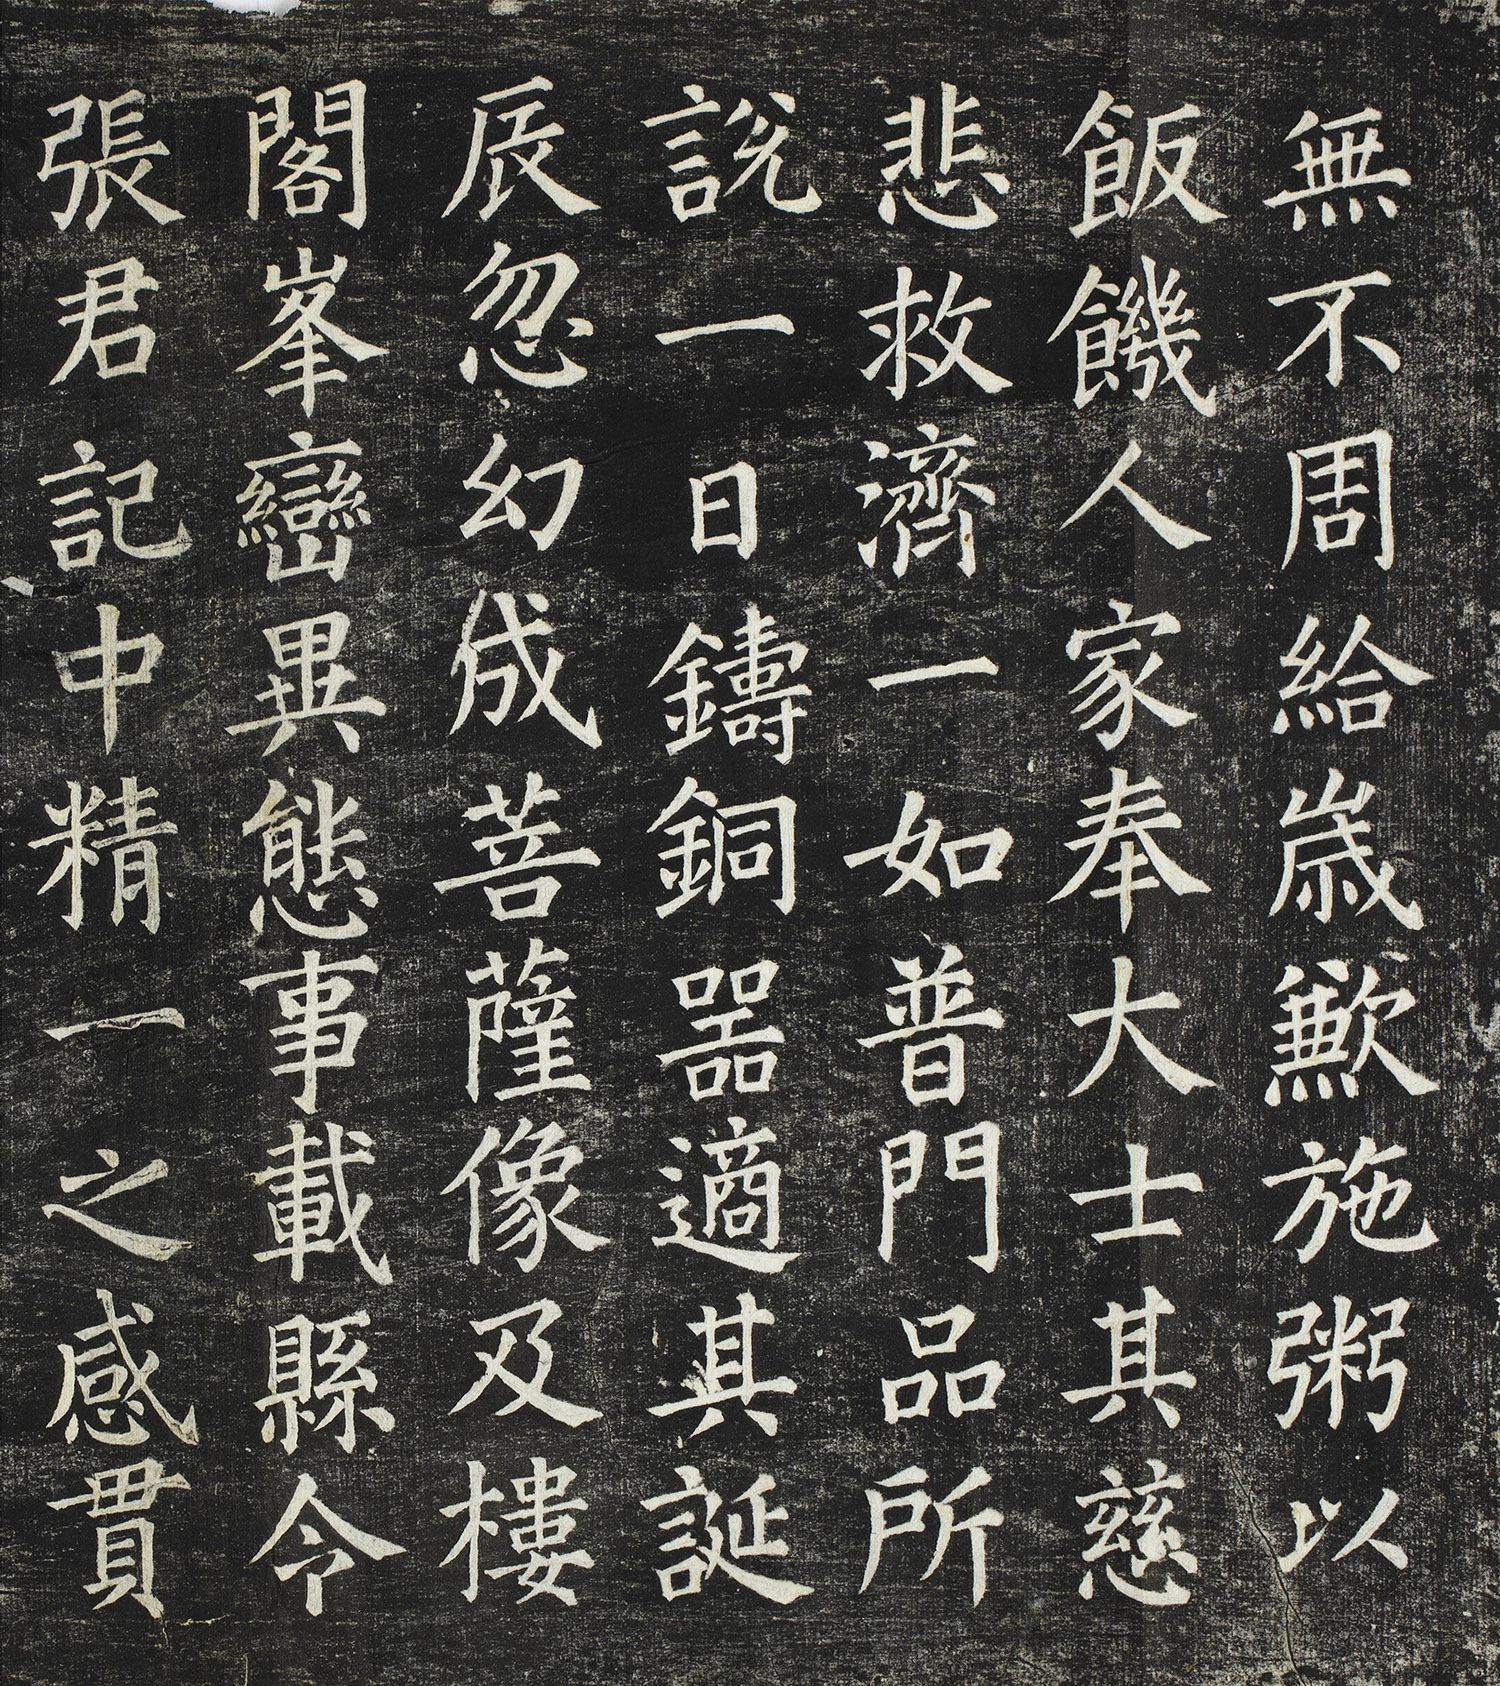 無不周給歳歉施粥以
飯饑人家奉大士其慈
悲救濟一如普門品所
說一日鑄銅器適其誕
辰忽幻成菩薩像及樓
閣峯巒異態事載縣令
張君記中精一之感貫